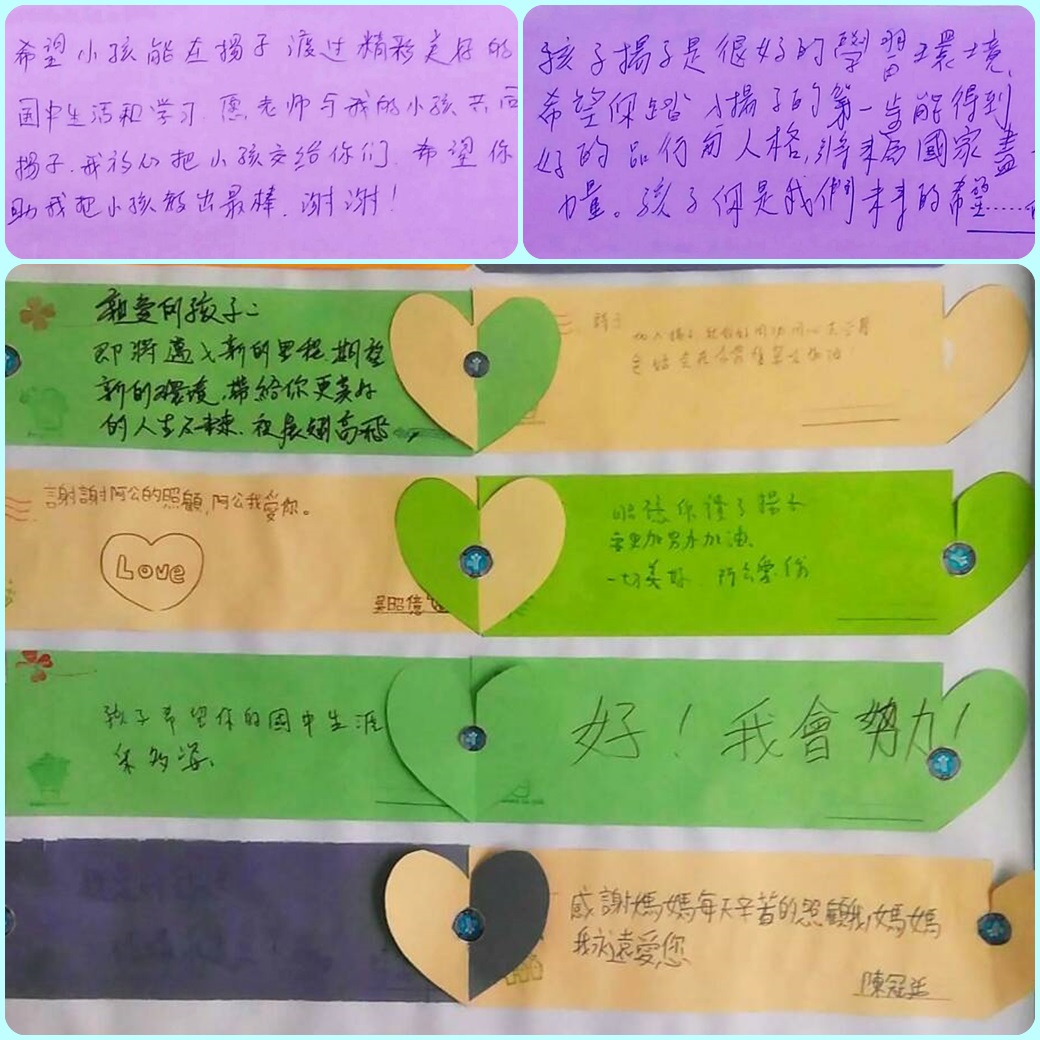 希望小孩能在揚子渡过精彩美好的
国中生活和学习.愿老师与我的小孩共同
揚子.我放心把小孩交给你们.希望你
助我把小孩教出最棒.谢谢!
孩子揚子是很好的學習環境,
希望你踏入揚子的第一步能得到
好的品行有人格,將來為國家盡
力量。孩子你是我們未來的希望......
親愛的孩子:
即將邁入新的里程期望
新的環境,帶給你更美好
的人生及未來.祝展翅高飛
謝謝阿公的照顧,阿公我愛你。
Love
吳昭億
昭億你讀了揚子
要更加努力加油
一切美好 阿公愛你
孩子希望你的國中生涯
多姿.
好!我會努力!
感謝媽媽每天辛苦的照顧我,媽媽
我永遠愛您
陳冠廷